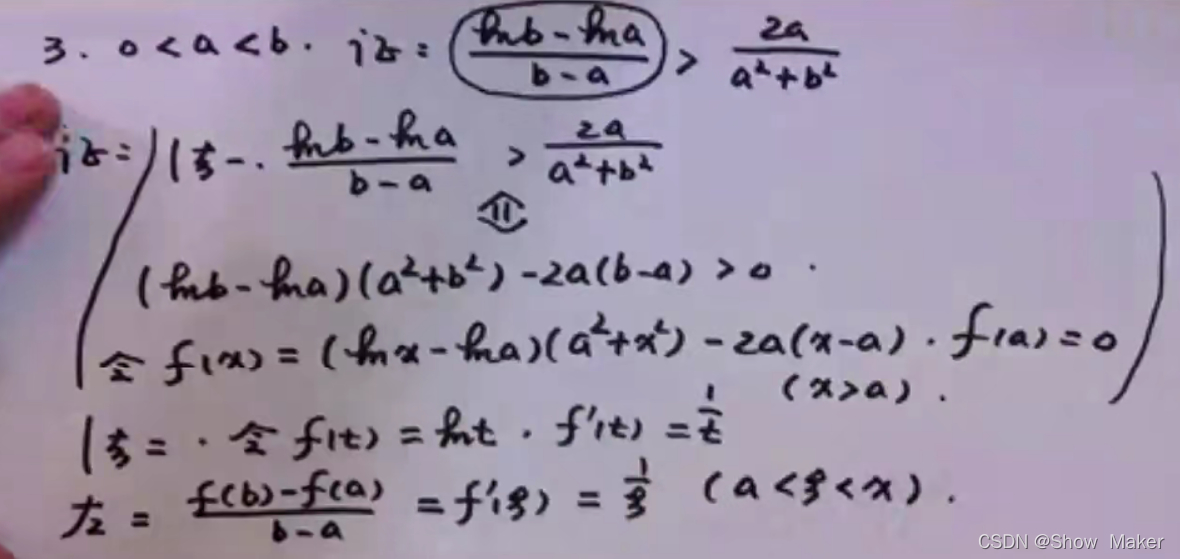 3. 0<a<b. 证: (lnb-lna)/(b-a) > 2a/(a²+b²)
证: 法一. (lnb-lna)/(b-a) > 2a/(a²+b²)
⇕
(lnb-lna)(a²+b²)-2a(b-a)>0.
令 f(x)=(lnx-lna)(a²+x²)-2a(x-a). f(a)=0
(x>a).
法二. 令 f(t)=lnt. f'(t)=1/t
左= (f(b)-f(a))/(b-a) =f'(ξ)= 1/ξ (a<ξ<x).
CSDN @Show_Maker